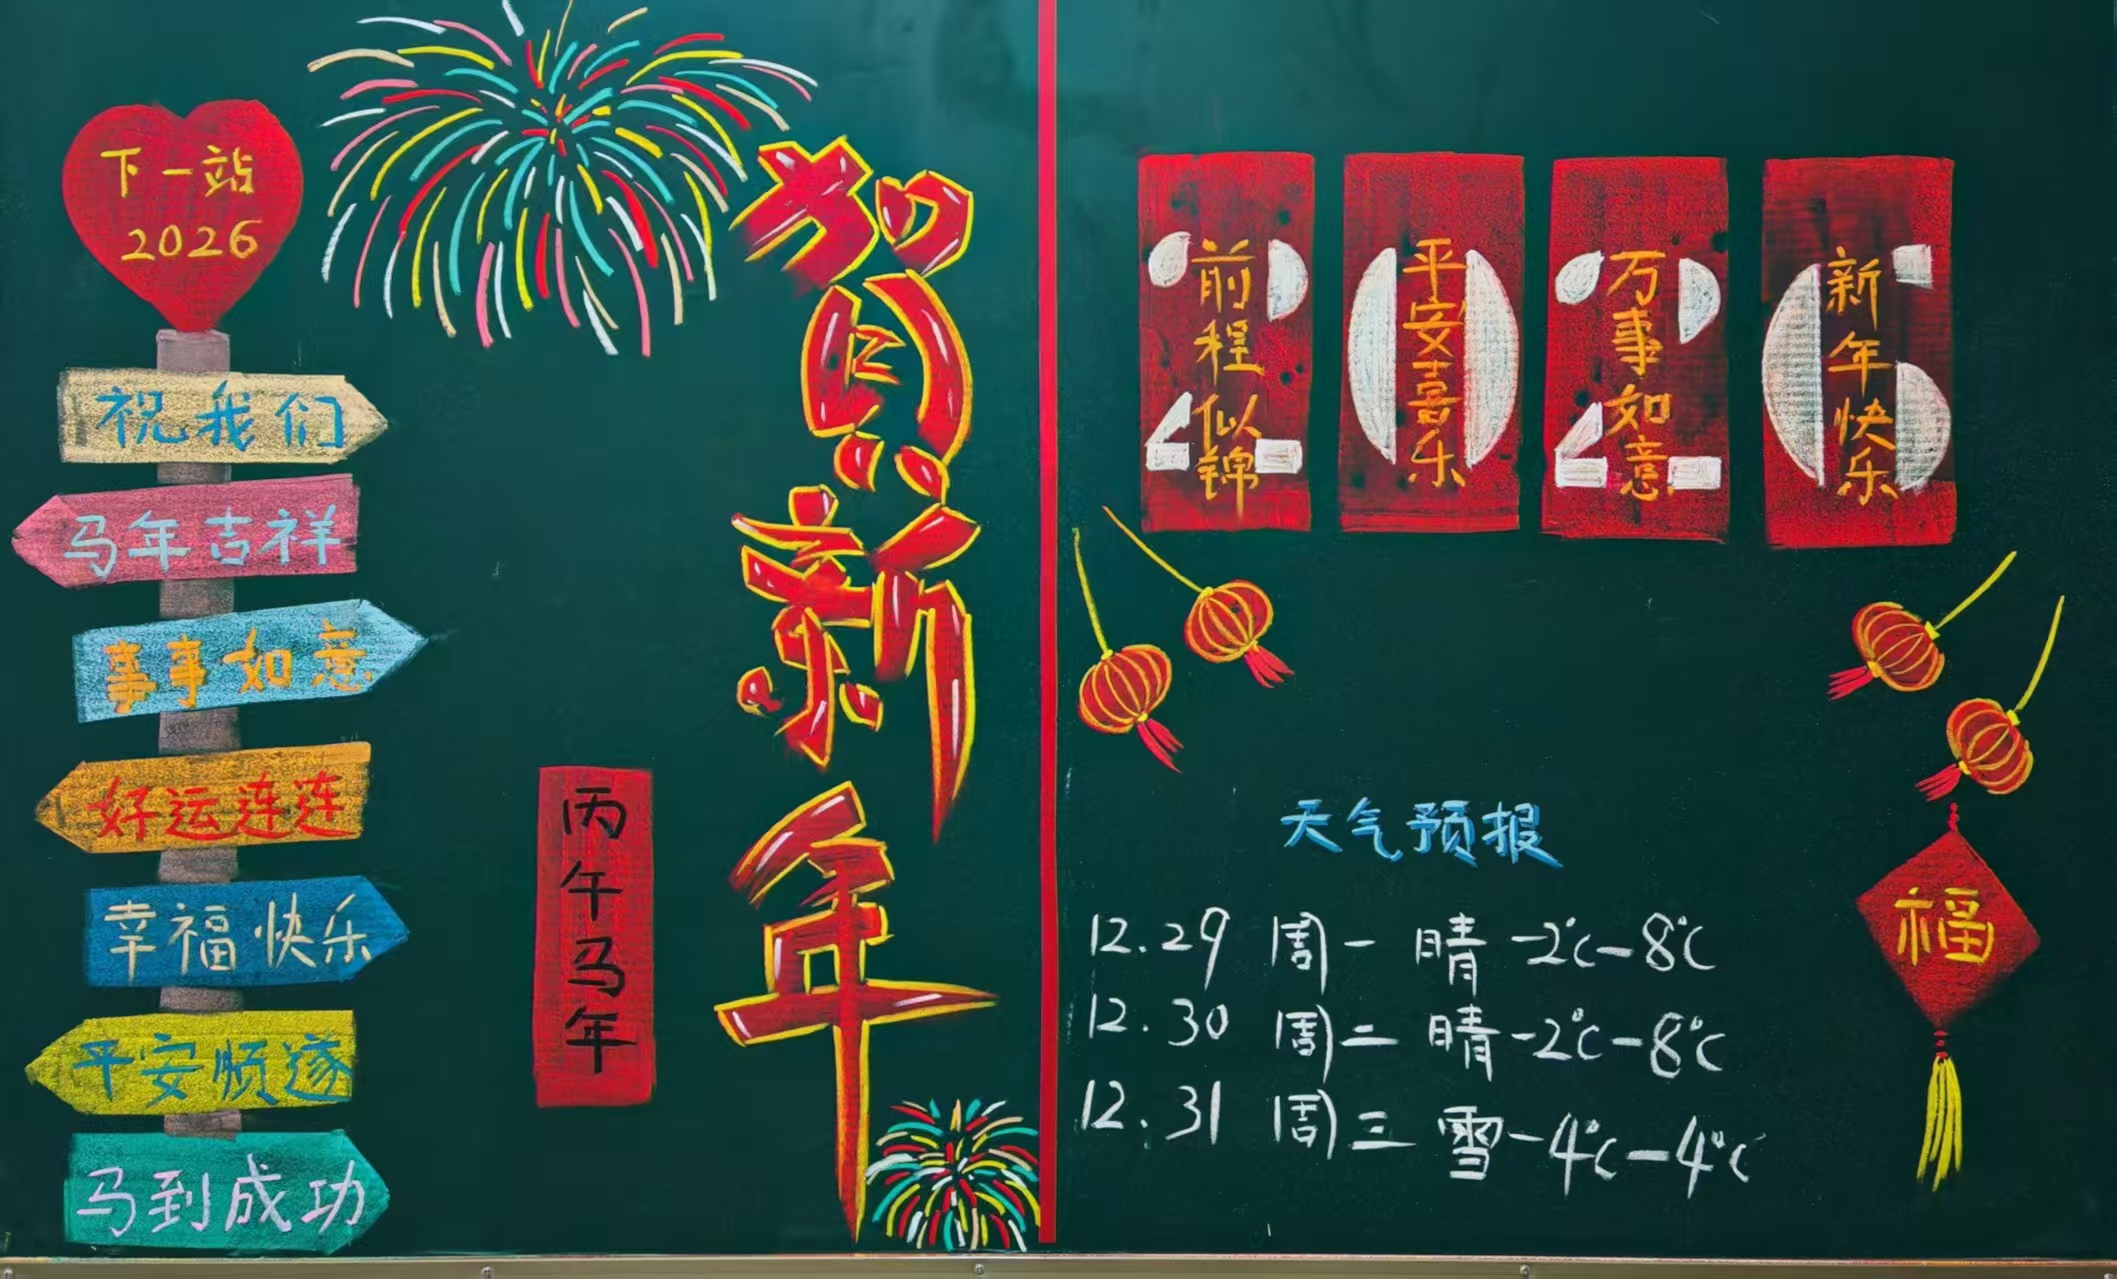 下一站
2026
祝我们
马年吉祥
事事如意
好运连连
幸福快乐
平安顺遂
马到成功
丙午马年
贺新年
2026
前程似锦
平安喜乐
万事如意
新年快乐
天气预报
12.29 周一 晴 -2℃-8℃
12.30 周二 晴 -2℃-8℃
12.31 周三 雪 -4℃-4℃
福